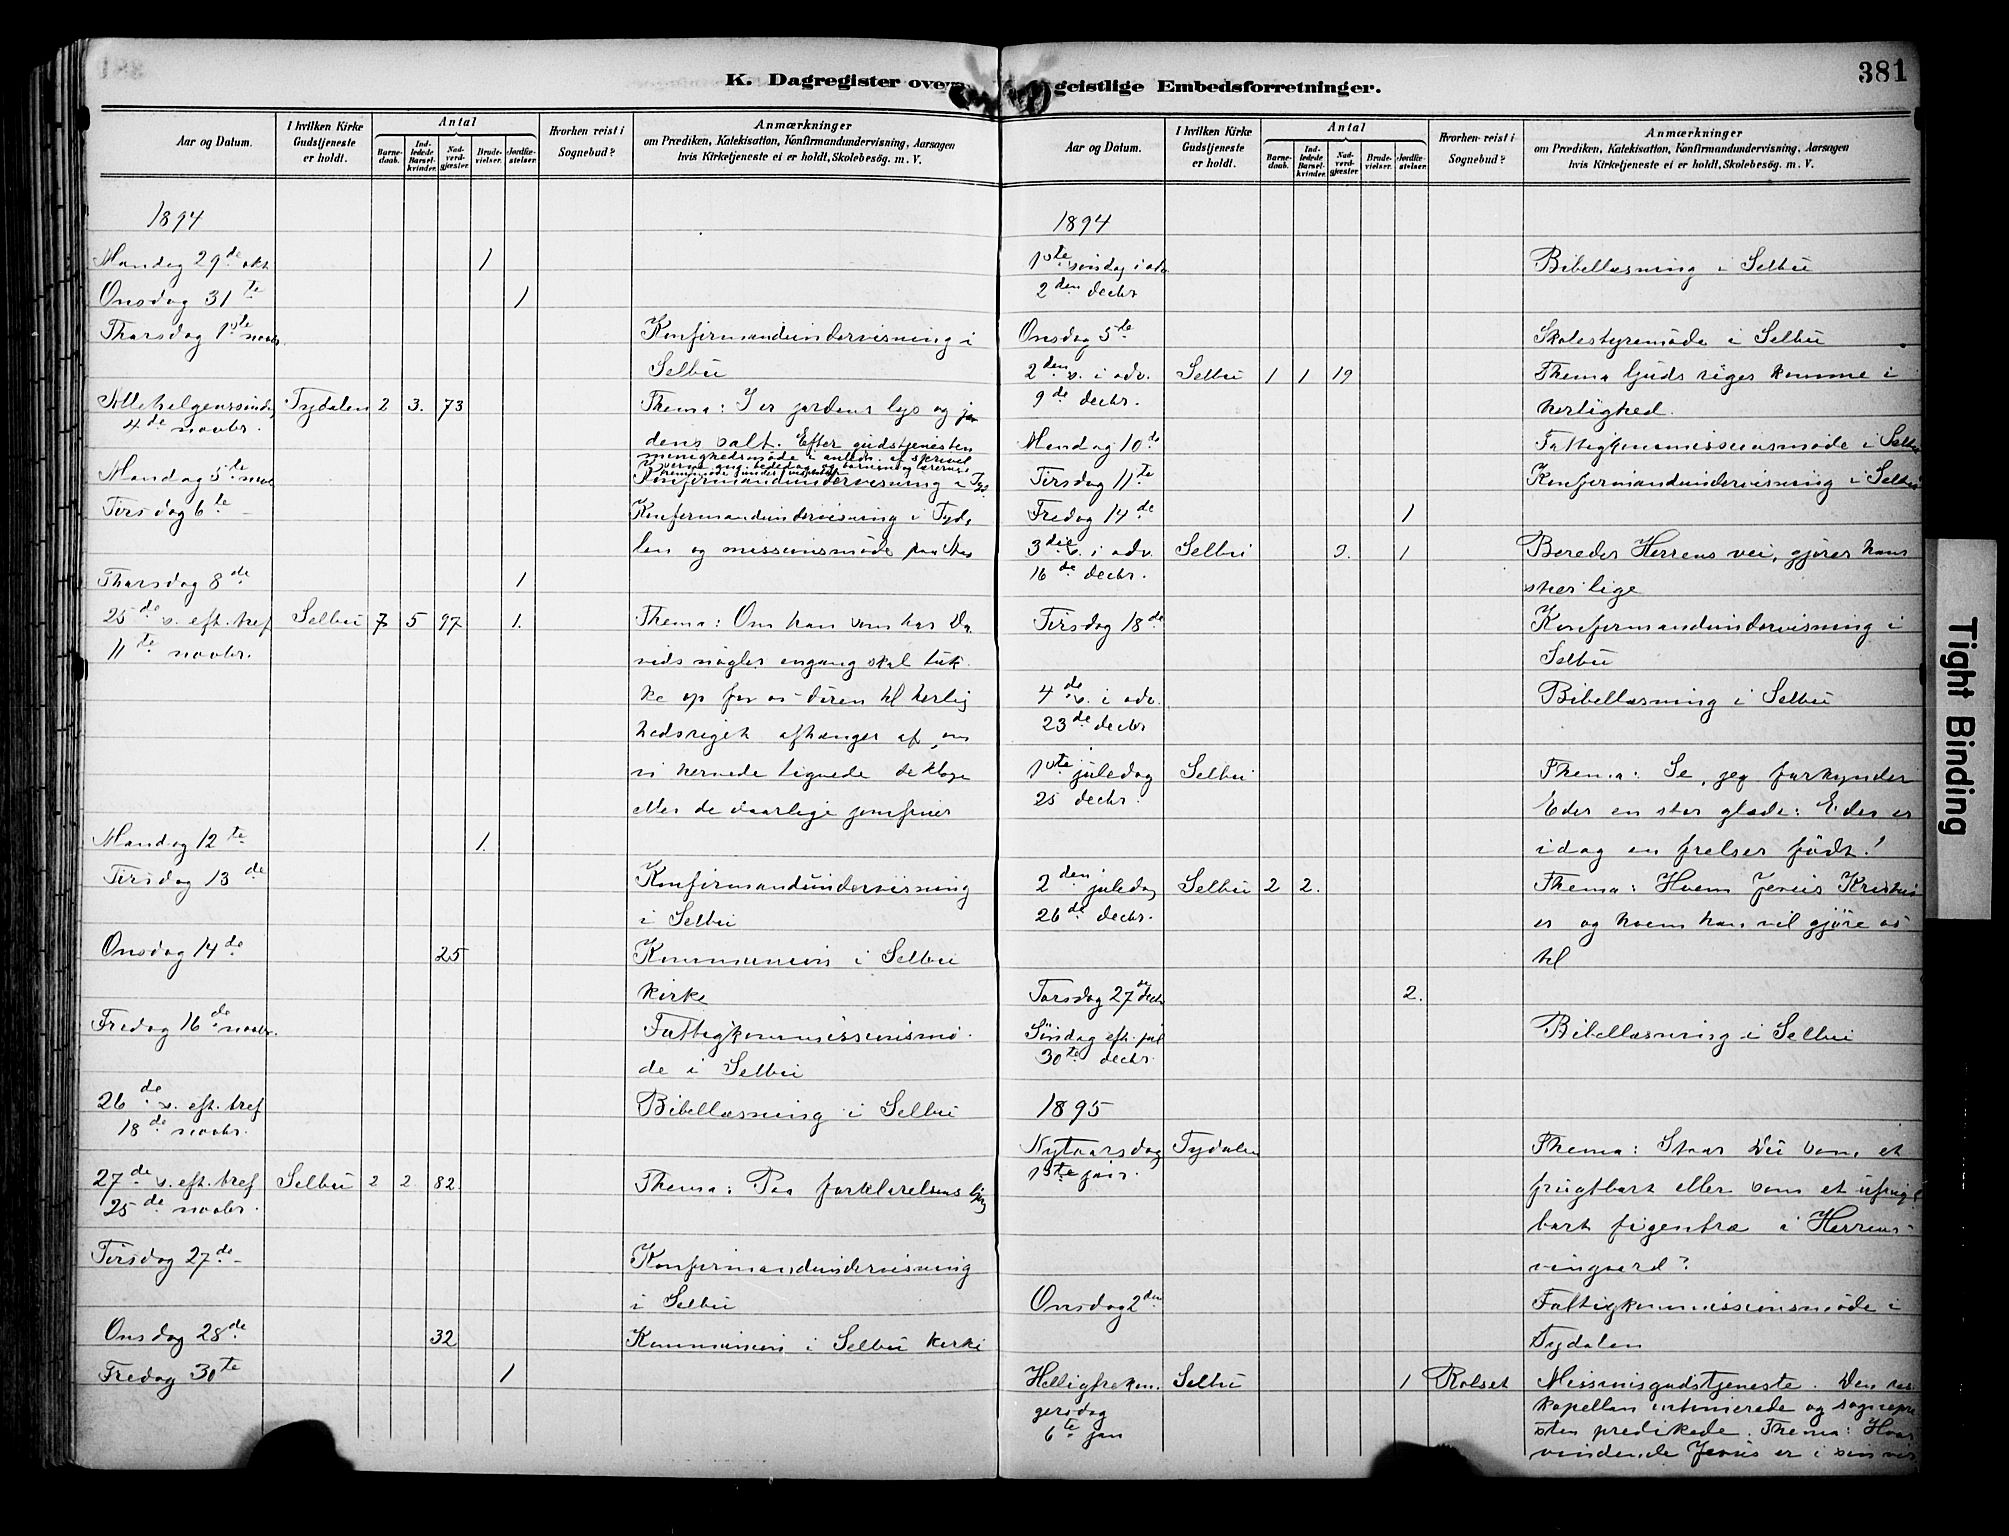 381
K. Dagregister over geistlige Embedsforretninger.
Aar og Datum.
I hvilken Kirke Gudstjeneste er holdt.
Antal
Barnedaab.
Indledede Barselkvinder.
Nadverdgjæster.
Brudevielser.
Jordfæstelser.
Hvorhen reist i Sognebud?
Anmærkninger
om Prædiken, Katekisation, Konfirmandundervisning, Aarsagen
hvis Kirketjeneste ei er holdt, Skolebesög. m. V.
1894
Mandag 29de okt 1
Onsdag 31te 1
Thorsdag 1ste novbr. Konfirmandundervisning i
Selbu
Allehelgenssönd. Tydalen 2 3. 73 Thema: I er jordens lys og jor
4de novbr. dens salt. Efter gudstjenesten
menighedsmöde i anledn. af skrivel
Mandag 5te nov Konfirmandundervisning i Tyd.
Tirsdag 6te - Konfirmandundervisning i Tyda
len og missionsmöde paa Aas
Thorsdag 8de 1
25de s. eft. tref Selbu 7 5 97 1. Thema: Om han som har Da
11te novbr. vids nögler engang skal luk
ke op for os dören til herlig
hedsriget afhænger af, om
vi hernede lignede de kloge
eller de daarlige jomfruer
Mandag 12te 1.
Tirsdag 13de Konfirmandundervisning
i Selbu
Onsdag 14de 25 Kommunion i Selbu
kirke
Fredag 16de novbr. Fattigkommissionsmö
de i Selbu
26de s. eft. tref Bibellæsning i Selbu
18de novbr.
27de s. eft. tref Selbu 2 2 82 Thema: Paa forklarelsens bjerg
25de novbr.
Tirsdag 27de - Konfirmandundervisning
i Selbu
Onsdag 28de 32 Kommunion i Selbu kirke
Fredag 30te 1
Aar og Datum.
I hvilken Kirke Gudstjeneste er holdt.
Antal
Barnedaab.
Indledede Barselkvinder.
Nadverdgjæster.
Brudevielser.
Jordfæstelser.
Hvorhen reist i Sognebud?
Anmærkninger
om Prædiken, Katekisation, Konfirmandundervisning, Aarsagen
hvis Kirketjeneste ei er holdt, Skolebesög. m. V.
1894
1ste söndag i adv Bibellæsning i Selbu
2den decbr
Onsdag 5te Skolestyremöde i Selbu
2den s. i adv. Selbu 1 1 19 Thema Guds riges komme i
9de decbr. herlighed.
Mandag 10de Fattigkommissionsmöde i Selbu
Tirsdag 11te Konfirmandundervisning i Selbu
Fredag 14de 1
3die s. i adv. Selbu 1 Bereder Herrens vei, gjörer hans
16de decbr. stier lige
Tirsdag 18de Konfirmandundervisning i
Selbu
4de s. i adv. Bibellæsning i Selbu
23de decbr
1ste juledag Selbu Thema: Se, jeg forkynder
25 decbr. Eder en stor glæde: Eder er
idag en frelser födt!
2den juledag Selbu 2 2. Thema: Hvem Jesus Kristus
26de decbr. er og hvem han vil gjöre os
til
Torsdag 27de decbr 2.
Söndag eft. jul Bibellæsning i Selbu
30te decbr.
1895
Nytaarsdag Tydalen Thema: Staar Du som et
1ste jan. frugtbart eller som et ufrugt
bart figentræ i Herrens
vingaard?
Onsdag 2den Fattigkommissionsmöde i
Tydalen
Helligtrekon- Selbu 1 Rolset Missionsgudstjeneste. Den res.
gersdag kapellan intonerede og sognepre
6te jan sten predikede. Thema: Hvor
vindende Jesus er i sin
Tight Binding